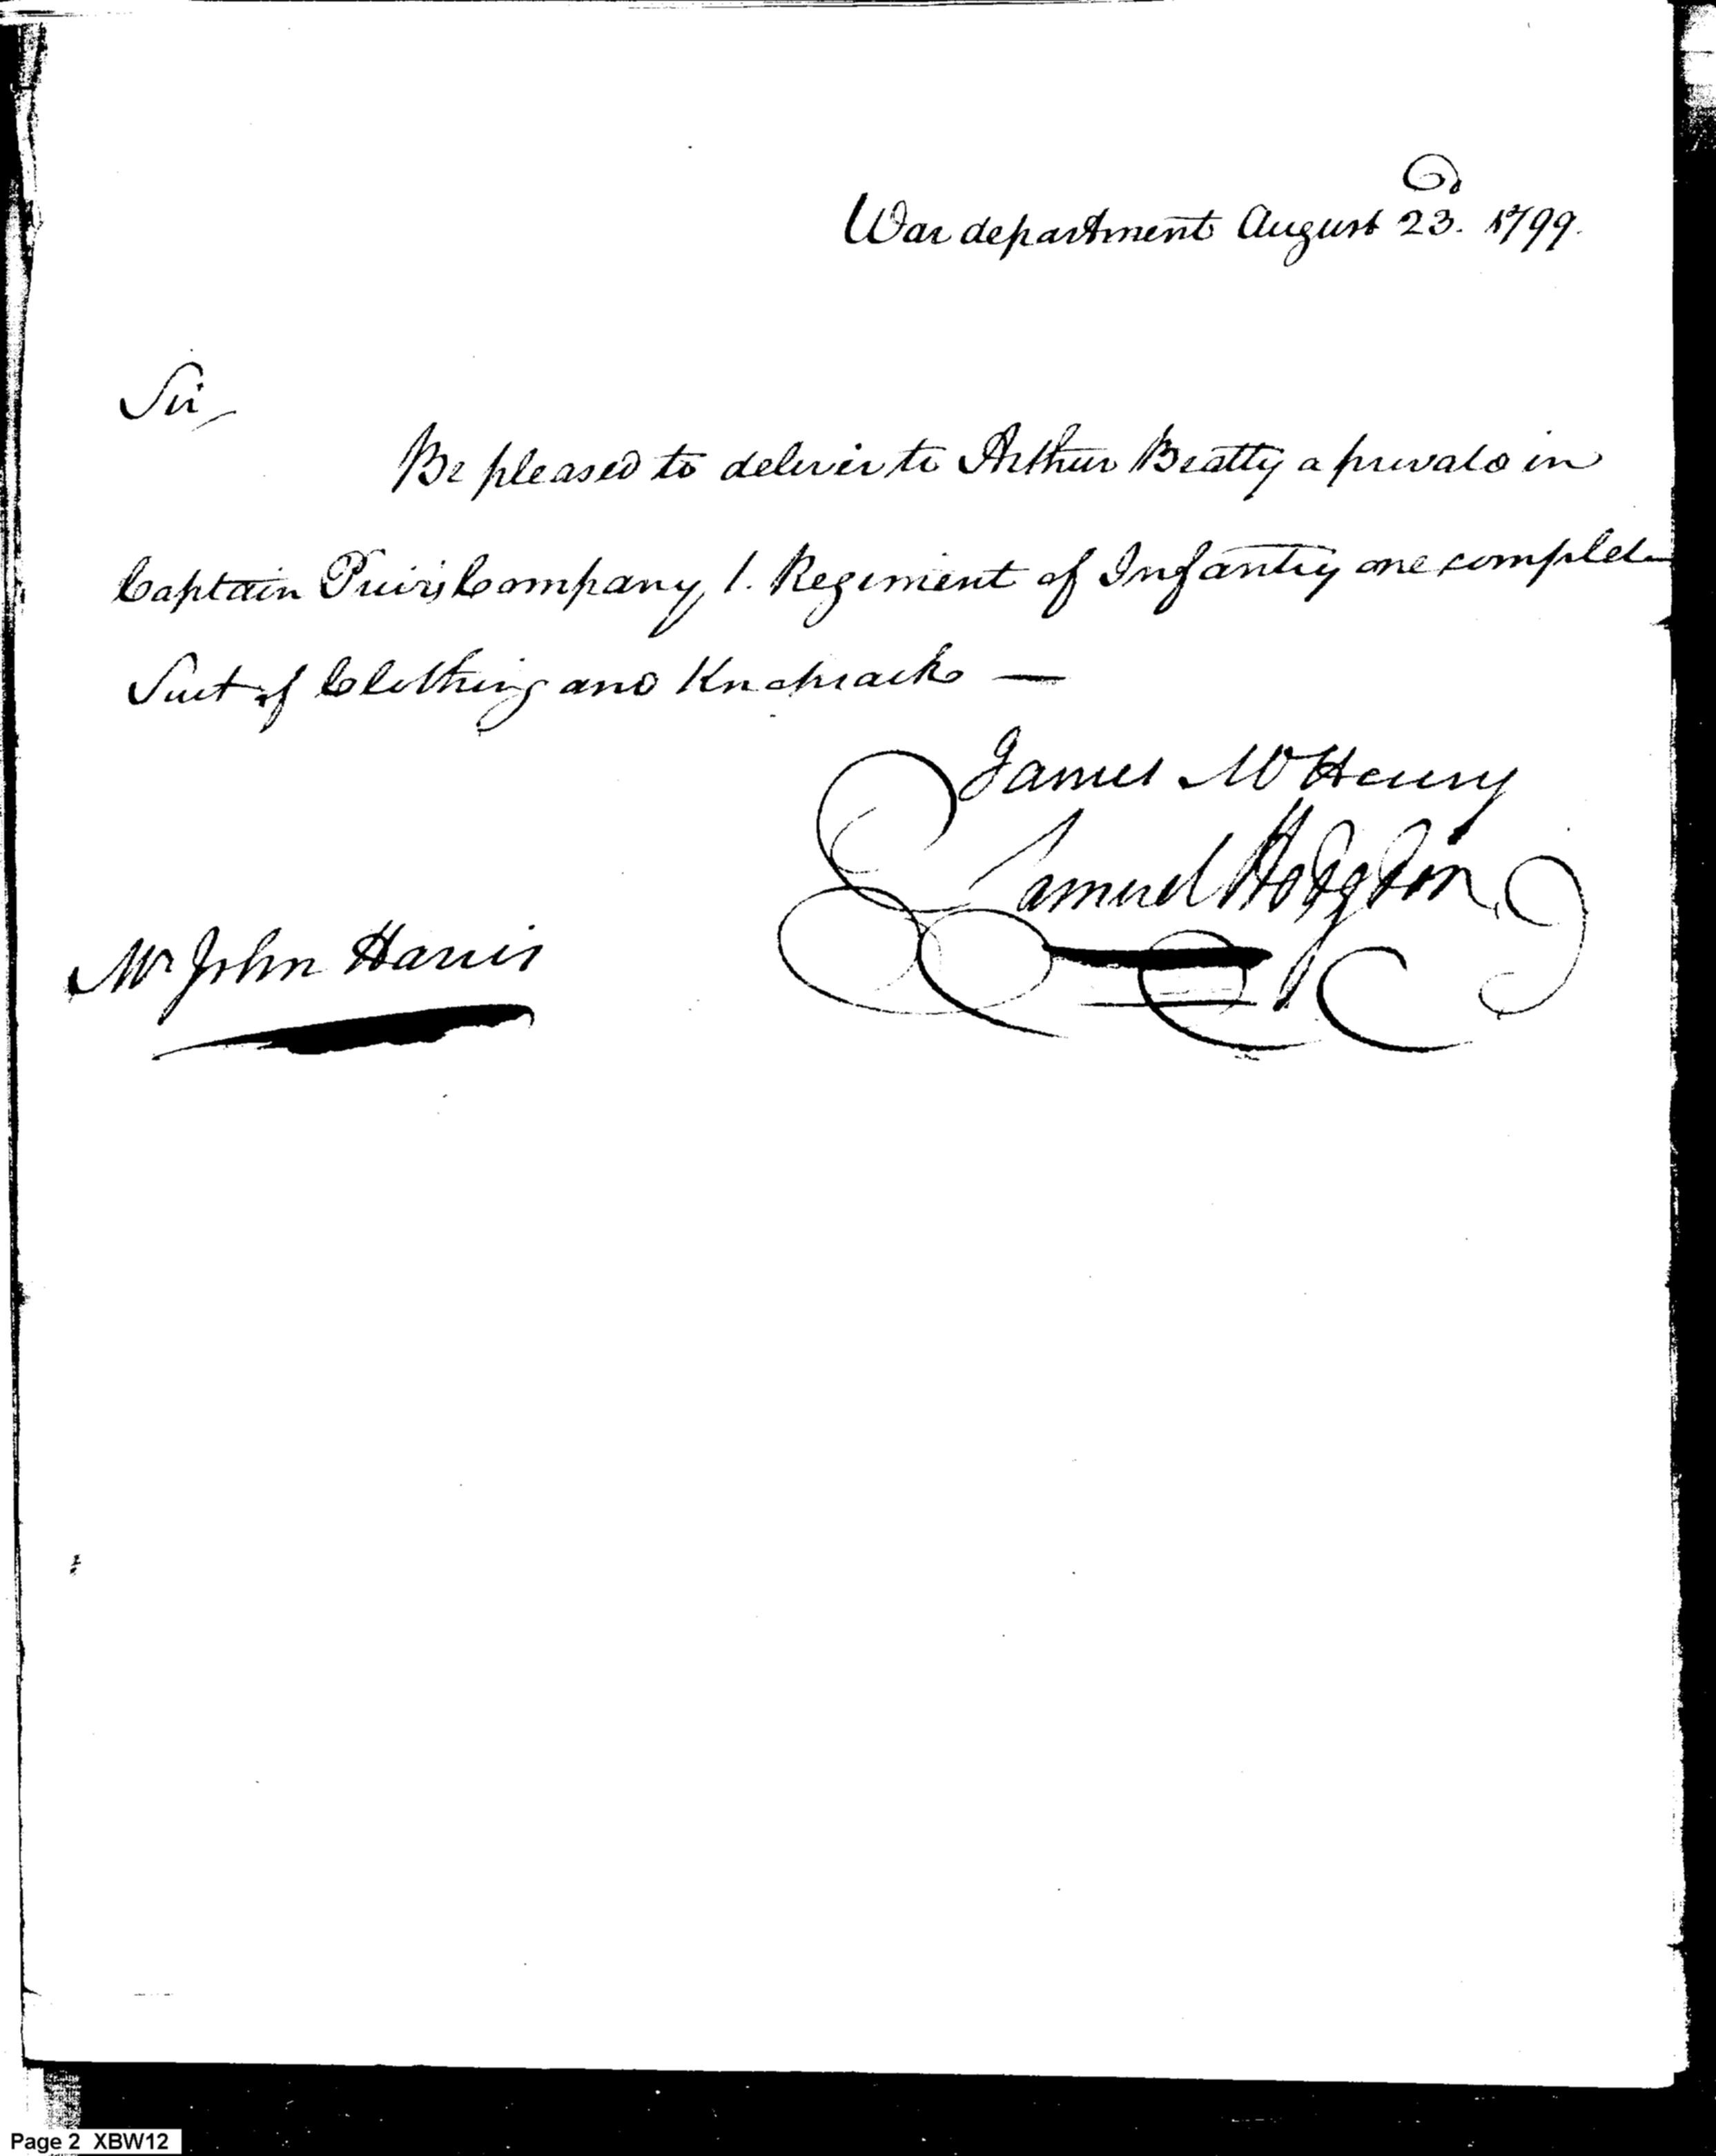 War department August 23d. 1799.
Sir,
Be pleased to deliver to Arthur Beatty a private in
Captain Company, 1. Regiment of Infantry one complete
Suit of Clothing and Knapsack —
James McHenry
Samuel Hodgdon
Mr John Harris
Page 2 XBW12